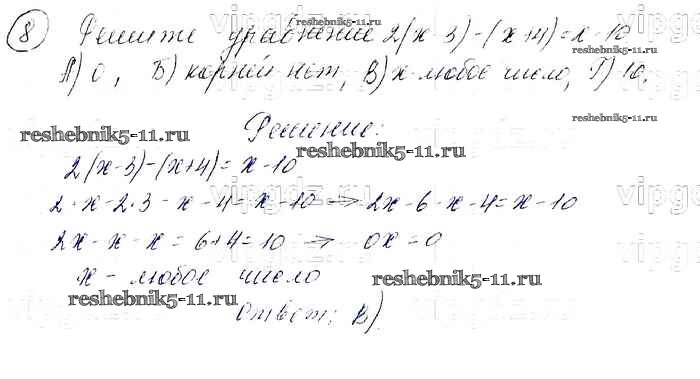 8) Решите уравнение 2(x-3)-(x+4)=x-10
А) 0, Б) корней нет, В) x-любое число, Г) 10.
Решение:
2(x-3)-(x+4)=x-10
2·x-2·3-x-4=x-10 → 2x-6-x-4=x-10
2x-x-x=6+4=10 → 0x=0
x- любое число
Ответ: В)
reshebnik5-11.ru
reshebnik5-11.ru
reshebnik5-11.ru
reshebnik5-11.ru
reshebnik5-11.ru
reshebnik5-11.ru
reshebnik5-11.ru